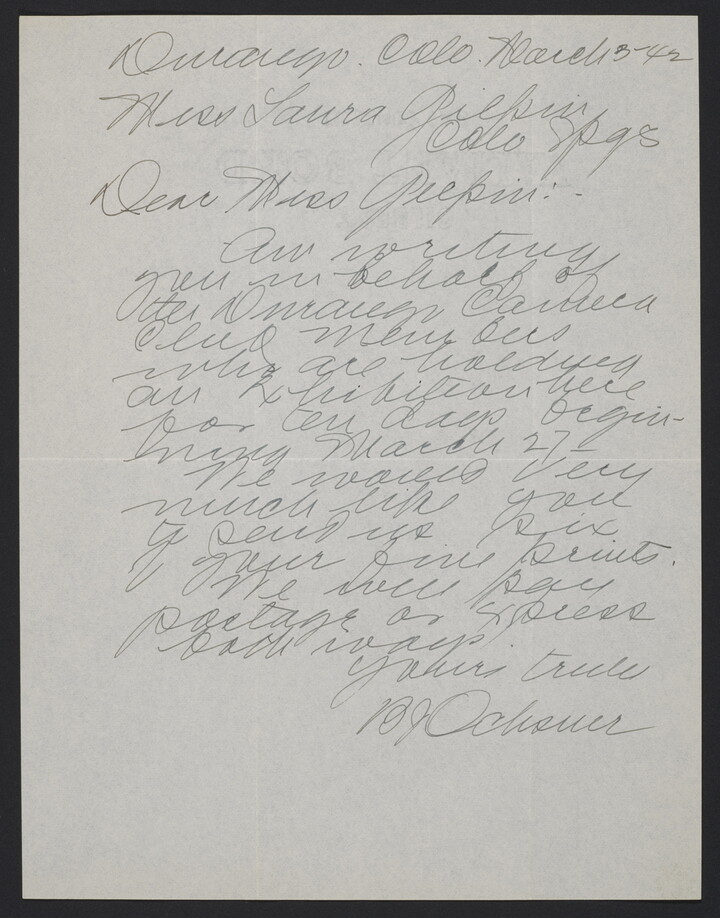 Durango. Colo. March 3-42
Miss Laura Gilpin
Colo Spgs
Dear Miss Gilpin:-
Am writing
you in behalf of
the Durango Camera
Club members
who are holding
an Exhibition here
for ten days begin-
ning March 27-
We would very
much like you
to send us six
of your fine prints.
We will pay
postage or Express
both ways.
Yours truly
B J Ochsner